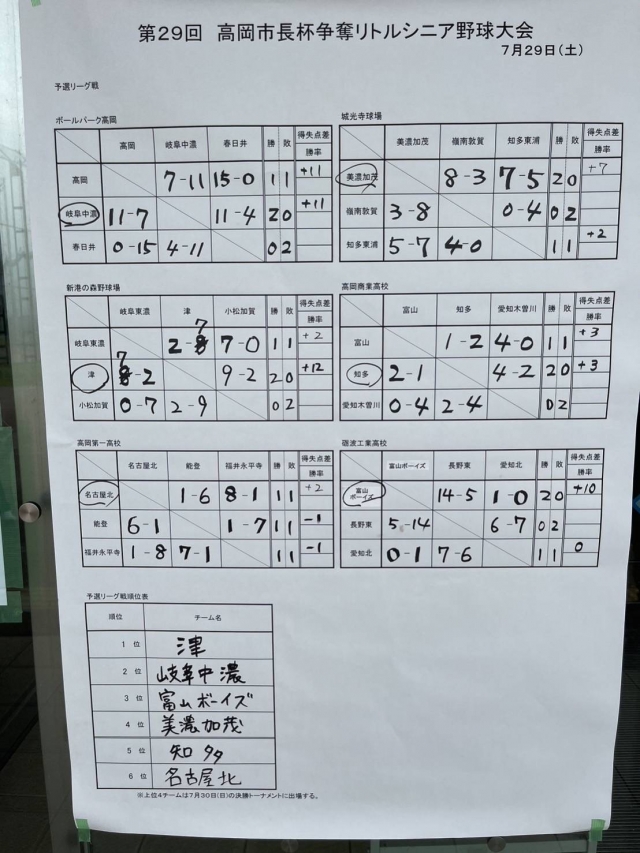 第29回 高岡市長杯争奪リトルシニア野球大会
7月29日(土)
予選リーグ戦
ボールパーク高岡
高岡 岐阜中濃 春日井 勝 敗 得失点差 勝率
高岡 7-11 15-0 1 1 +11
岐阜中濃 11-7 11-4 2 0 +11
春日井 0-15 4-11 0 2
城光寺球場
美濃加茂 嶺南敦賀 知多東浦 勝 敗 得失点差 勝率
美濃加茂 8-3 7-5 2 0 +7
嶺南敦賀 3-8 0-4 0 2
知多東浦 5-7 4-0 1 1 +2
新港の森野球場
岐阜東濃 津 小松加賀 勝 敗 得失点差 勝率
岐阜東濃 2-7 7-0 1 1 +2
津 7-2 9-2 2 0 +12
小松加賀 0-7 2-9 0 2
高岡商業高校
富山 知多 愛知木曽川 勝 敗 得失点差 勝率
富山 1-2 4-0 1 1 +3
知多 2-1 4-2 2 0 +3
愛知木曽川 0-4 2-4 0 2
高岡第一高校
名古屋北 能登 福井永平寺 勝 敗 得失点差 勝率
名古屋北 1-6 8-1 1 1 +2
能登 6-1 1-7 1 1 -1
福井永平寺 1-8 7-1 1 1 -1
砺波工業高校
富山ボーイズ 長野東 愛知北 勝 敗 得失点差 勝率
富山ボーイズ 14-5 1-0 2 0 +10
長野東 5-14 6-7 0 2
愛知北 0-1 7-6 1 1 0
予選リーグ戦順位表
順位 チーム名
1 位 津
2 位 岐阜中濃
3 位 富山ボーイズ
4 位 美濃加茂
5 位 知多
6 位 名古屋北
※上位4チームは7月30日(日)の決勝トーナメントに出場する。